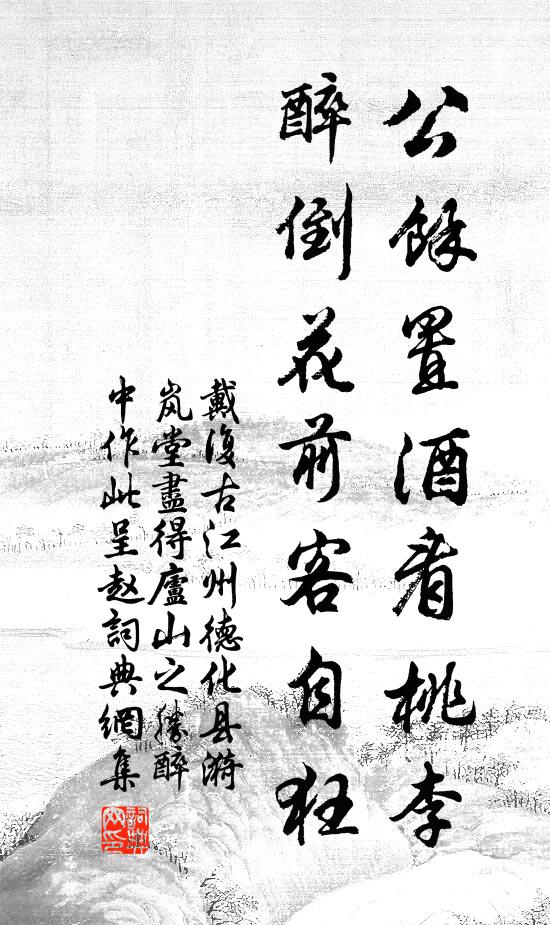 公餘置酒看桃李
醉倒花前客自狂
戴復古江州德化县漪
岚堂盡得廬山之勝醉
中作此呈赵詞典網集